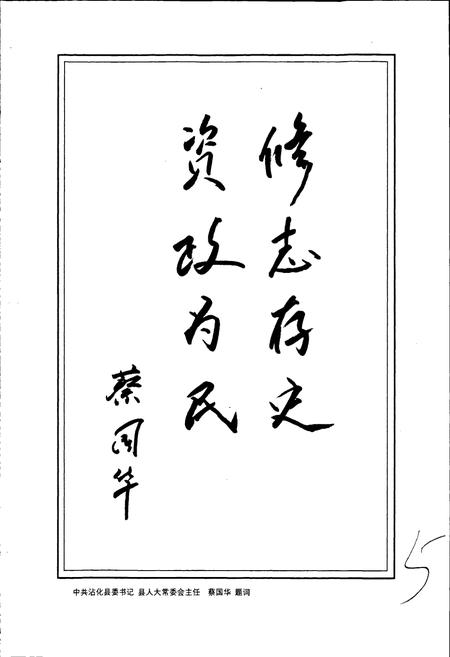 修志存史
资政为民
蔡国华
中共沾化县委书记 县人大常委会主任 蔡国华 题词
5